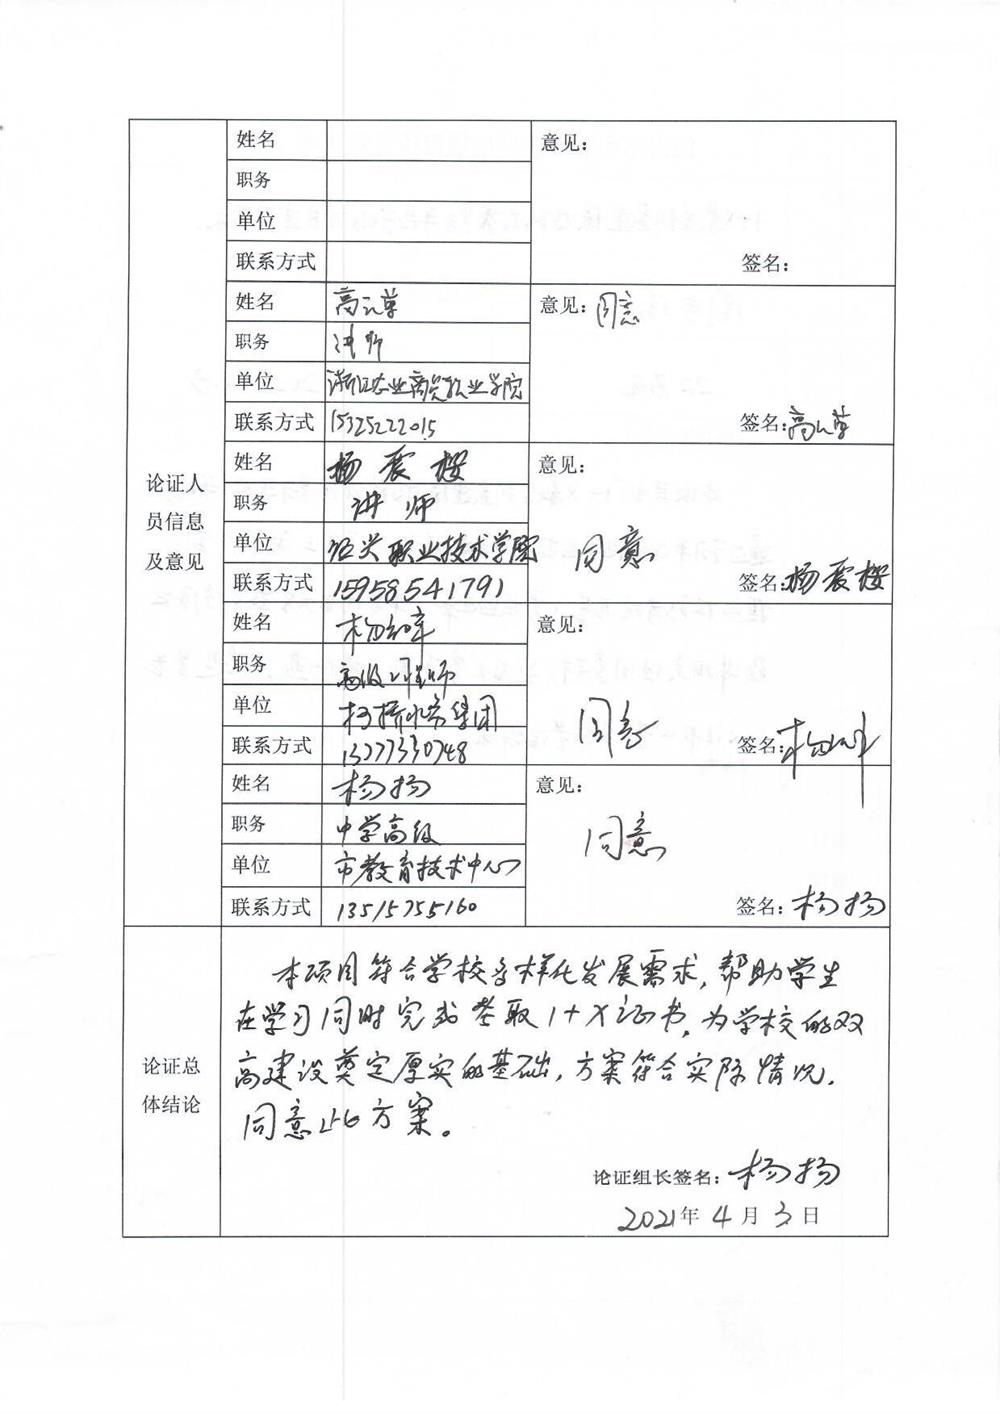 姓名
意见：
职务
单位
联系方式
签名：
姓名 高
意见：同意
职务 讲师
单位 浙江农业商贸职业学院
联系方式 15325222015
签名：高
论证人
员信息
及意见
姓名 杨震樱
意见：
职务 讲师
单位 绍兴职业技术学院
同意
联系方式 15958541791
签名：杨震樱
姓名 杨
意见：
职务 高级工程师
单位 柯桥水务集团
同意
联系方式 13777330748
签名：杨
姓名 杨扬
意见：
职务 中学高级
同意
单位 市教育技术中心
联系方式 13515755160
签名：杨扬
论证总
体结论
本项目符合学校多样化发展需求，帮助学生
在学习同时完成考取1+X证书，为学校的双
高建设奠定厚实的基础，方案符合实际情况，
同意此方案。
论证组长签名：杨扬
2021年4月3日